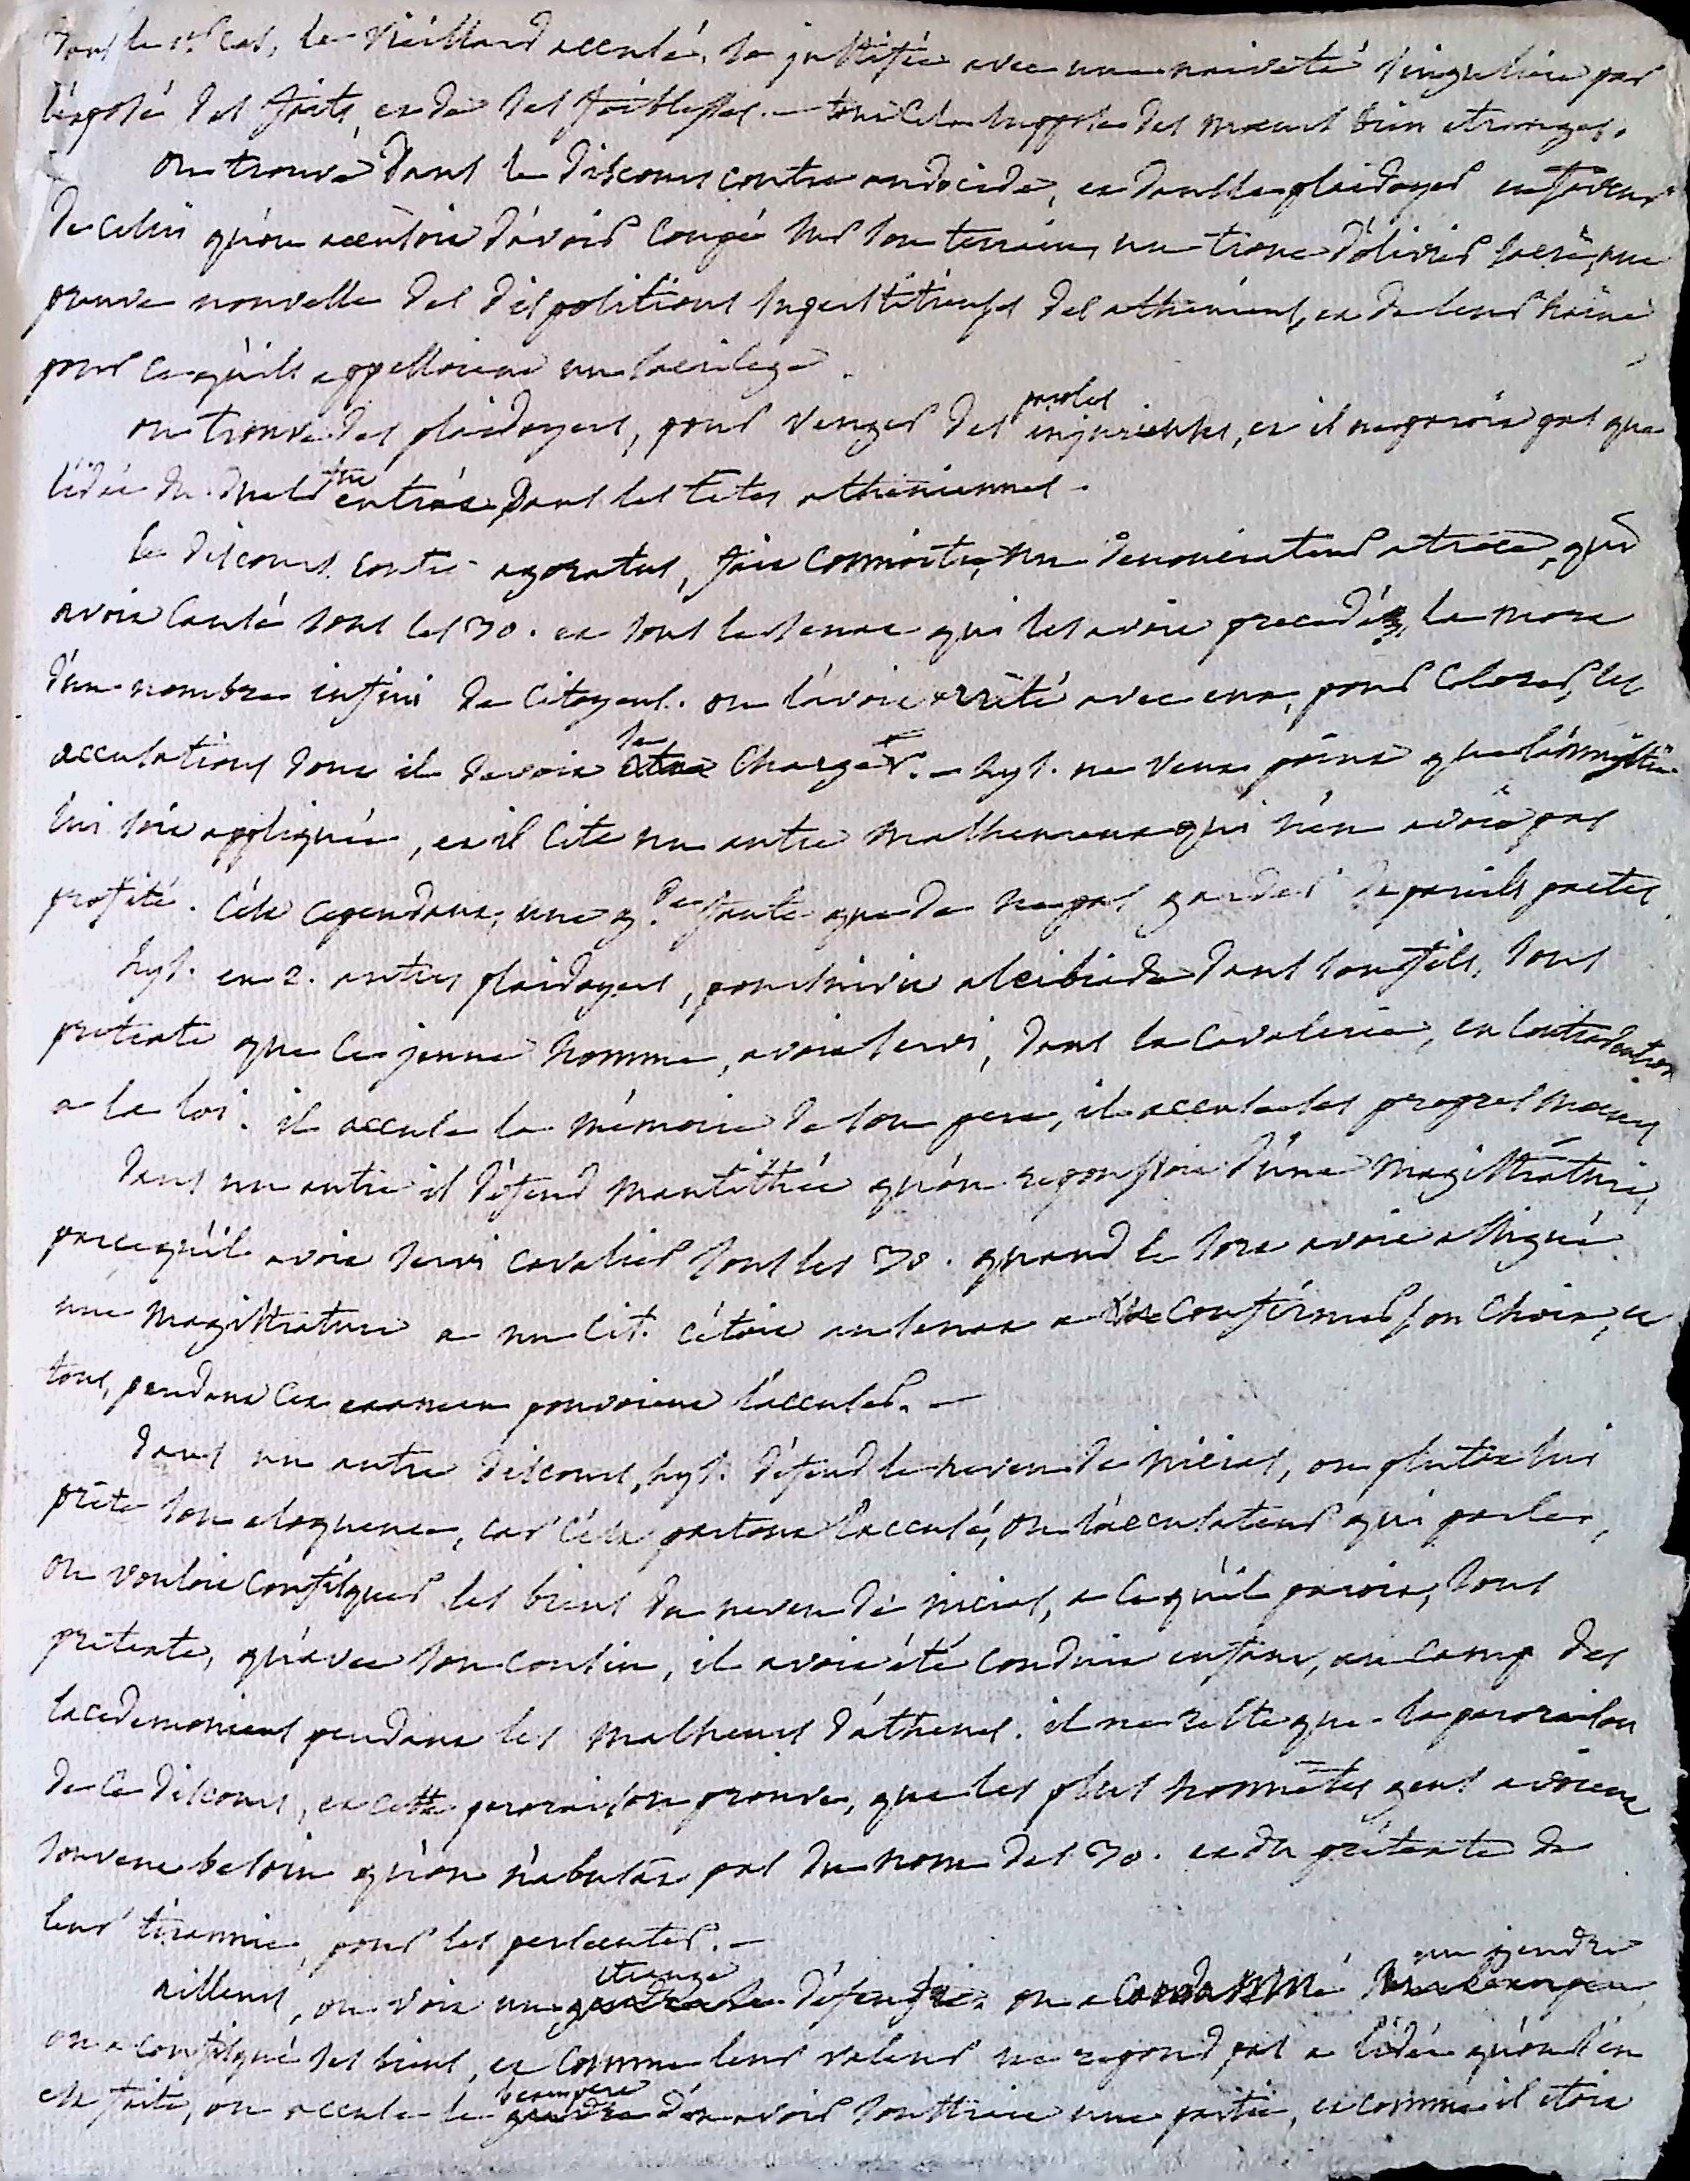 dans le 1er cas, le vieillard accusé, se justifie avec une naiveté singuliere par
l'exposé des faits, et de ses foiblesses. — tout cela suppose des moeurs bien etranges.
on trouve dans le discours contre andocide, et dans le plaidoyer en faveur
de celui qu'on accusoit d'avoir coupé sur son terrein, un tronc d'olivier sacré, une
preuve nouvelle des dispositions superstitieuses des atheniens, et de leur haine
pour ce qu'ils appelloient un sacrilege.
on trouve des plaidoyers, pour venger des paroles injurieuses, et il ne paroit pas que
l'idée du duel fut entrée dans les tetes atheniennes.
le discours contre agoratus, fait connoitre, un denonciateur atroce, qui
avoit causé sous les 30. et sous le senat qui les avoit precedés, la mort
d'un nombre infini de citoyens. on l'avoit arrêté avec eux, pour colorer, les
accusations dont il devoit se charger. — lys. ne veut point que l'amnistie
lui soit appliquée, et il cite un autre malheureux qui n'en avoit pas
profité. c'est cependant, une gde faute que de ne pas garder de pareils pactes.
lys. en 2. autres plaidoyers, poursuivit alcibiade dans son fils, sous
pretexte que ce jeune homme, avoit servi, dans la cavalerie, en contradiction
a la loi. il accuse la mémoire de son pere, il accuse ses propres moeurs
dans un autre il défend mantithée qu'on repoussoit d'une magistrature,
parcequ'il avoit servi cavalier sous les 30. quand le sort avoit assigné
une magistrature a un cit. c'étoit au senat a confirmer son choix, et
tous, pendant cet examen pouvoient l'accuser. —
dans un autre discours, lys. défend le neveu de nicias, ou plutôt lui
prete son eloquence, car c'est partout l'accusé, ou l'accusateur qui parle,
on vouloit confisquer les biens du neveu de nicias, a ce qu'il paroit, sous
pretexte, qu'avec son cousin, il avoit été conduit enfant, au camp des
lacedemoniens pendant les malheurs d'athenes. il ne reste que la peroraison
de ce discours, et cette peroraison prouve, que les plus honnêtes gens avoient
souvent besoin qu'on n'abusât pas du nom des 30. et du prétexte de
leur tirannie, pour les persecuter. —
ailleurs, on voit une etrange défense. on a condamné un gendre
on a confisqué ses biens, et comme leur valeur ne repond pas a l'idée qu'on s'en
est faite, on accuse le beaupere d'en avoir soustrait une partie, et comme il etoit